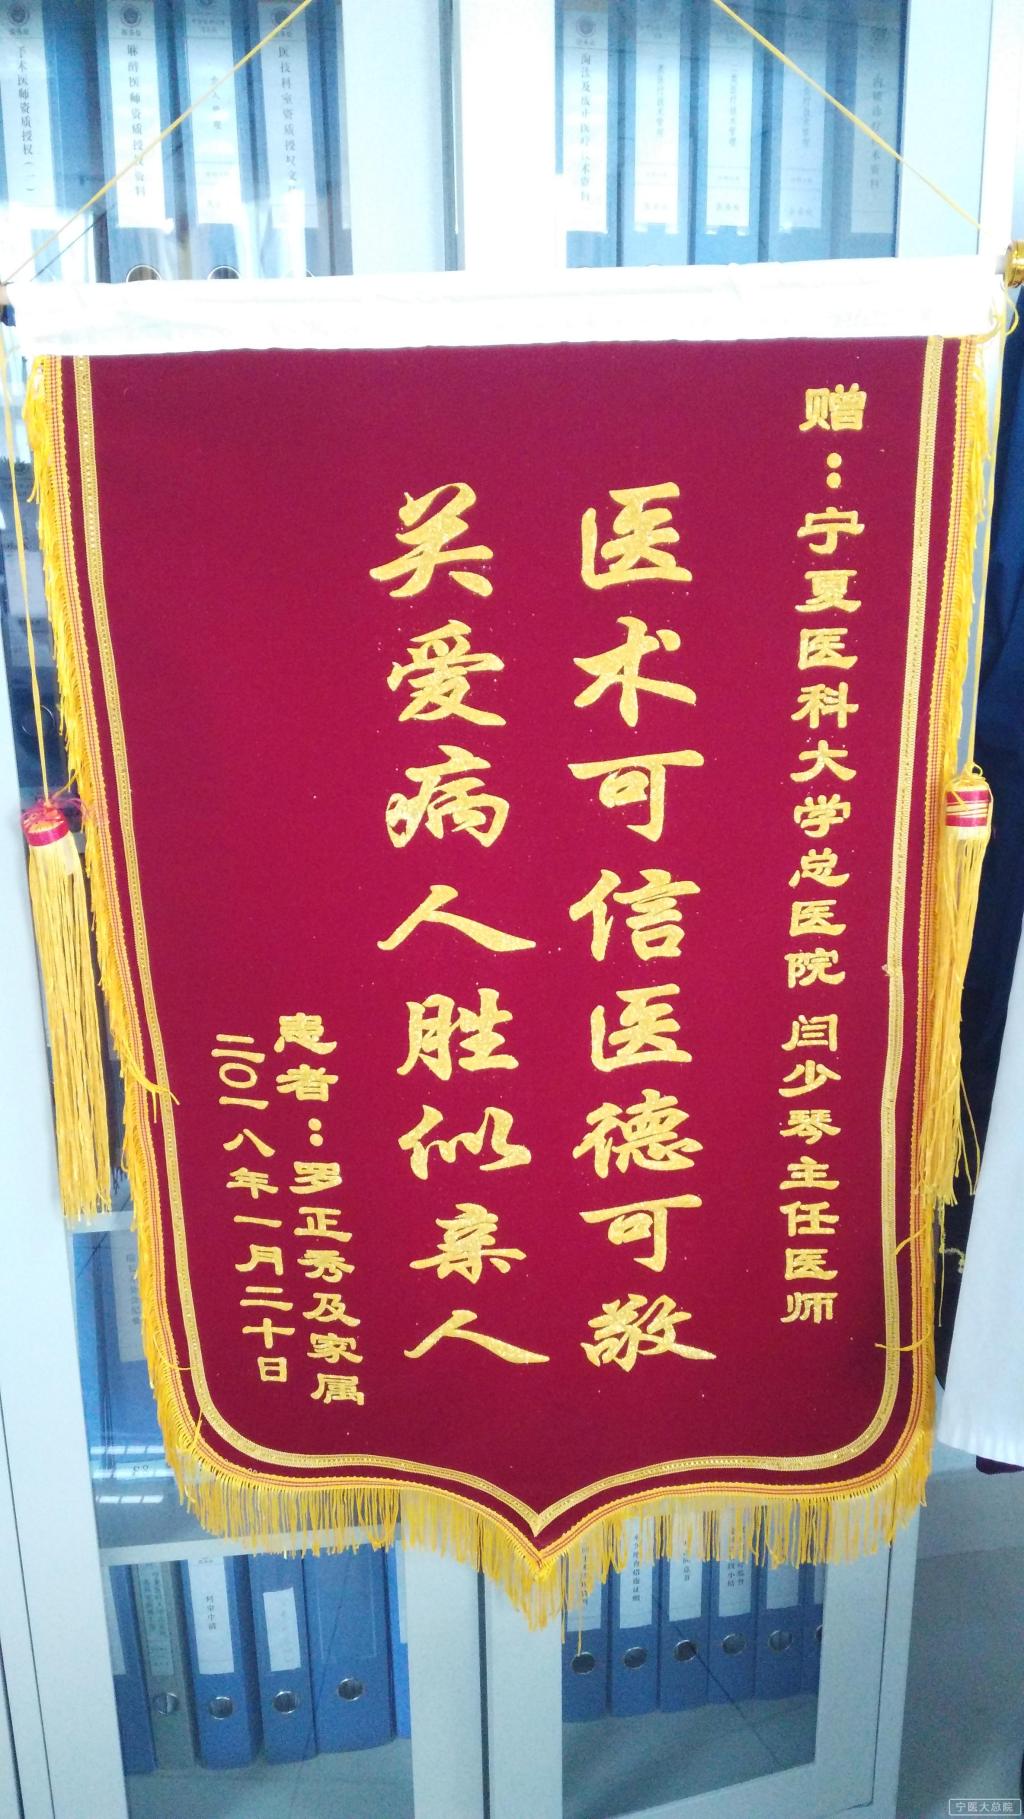 手术医师资质授权(一)
麻醉医师资质授权资料
医技科室资质授权文
赠：宁夏医科大学总医院 闫少琴主任医师
医术可信医德可敬
关爱病人胜似亲人
患者：罗正秀及家属
二〇一八年一月二十日
宁医大总院